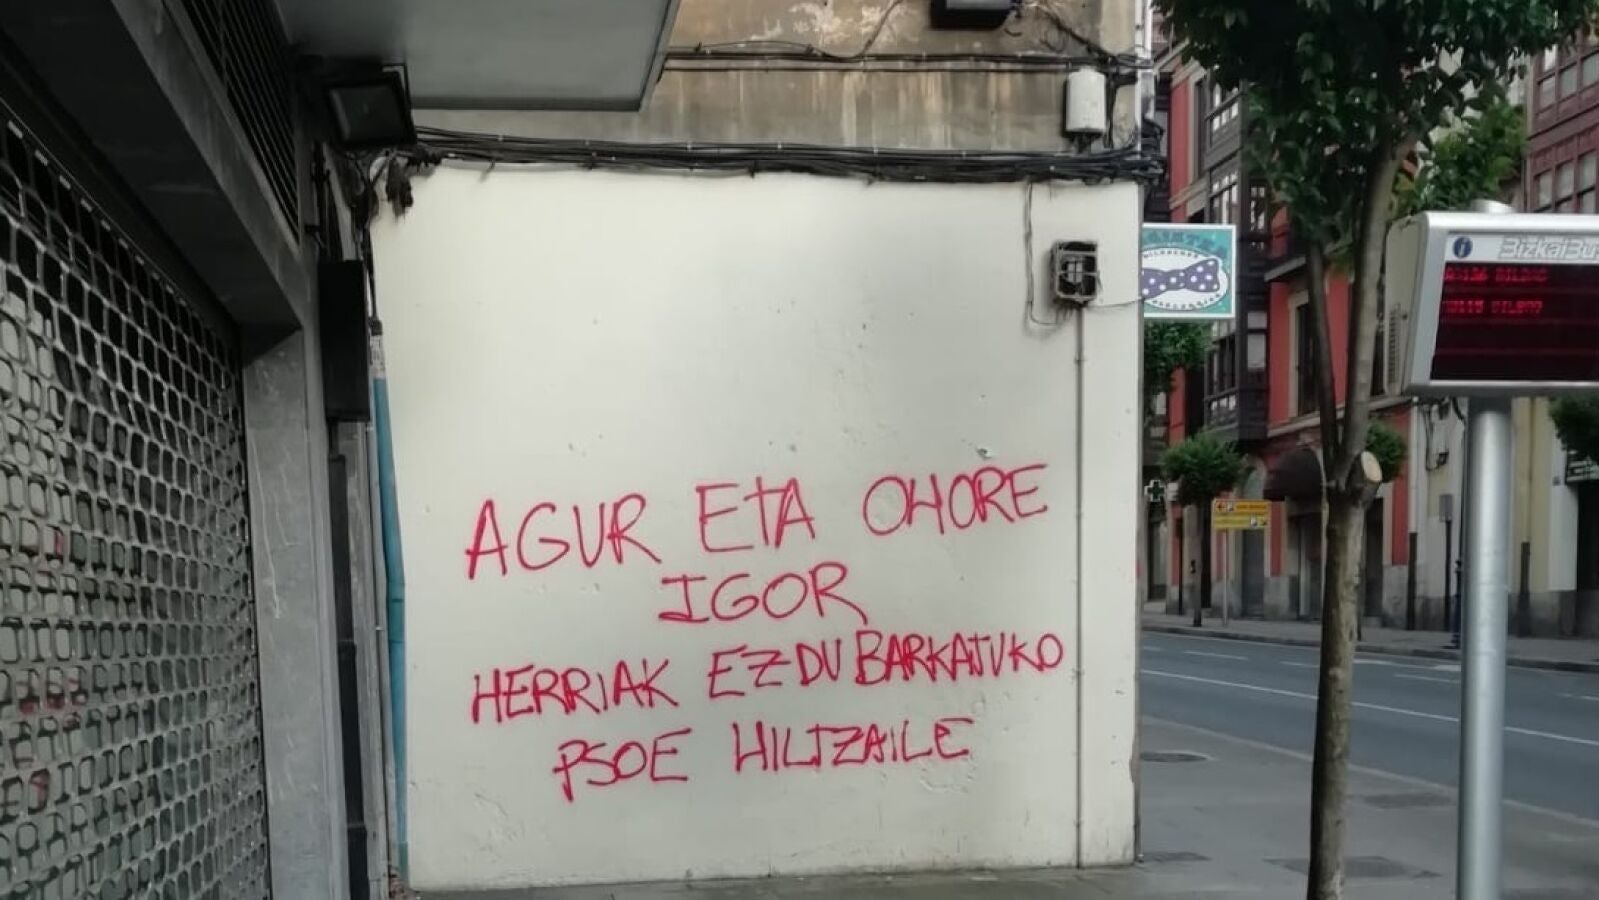 AGUR ETA OHORE
IGOR
HERRIAK EZ DU BARKATUKO
PSOE HILTZAILE
BizkaiBu
BILBAO
BILBAO